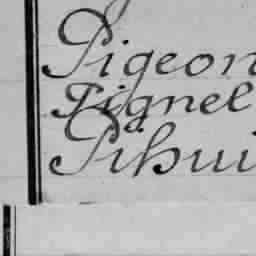 Pigeon
Pignel
Pihui